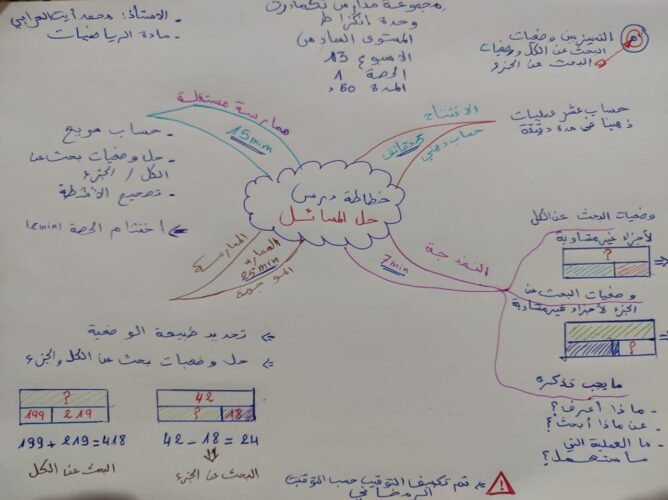 - الاستاذ: محمد أيت العرابي
- مادة الرياضيات
مجموعة مدارس تكمادرت
وحدة
المستوى السادس
الاسبوع 13
الحصة 1
المدة 50د
التمييز بين وضعيات
البحث عن الكل ووضعيات
البحث عن الجزء
خطاطة درس
حل المسائل
الافتتاح
5 دقائق
حساب ذهني
حساب عشر عمليات
ذهنيا في مدة دقيقة
النمذجة
7min
وضعيات البحث عن الكل
لأجزاء غير متساوية
?
وضعيات البحث عن
الجزء لأجزاء غير متساوية
?
ما يجب تذكره
- ماذا أعرف؟
- عن ماذا أبحث؟
- ما العملية التي
سأستعمل؟
الممارسة
25min
الموجهة
<= تحديد طبيعة الوضعية
<= حل وضعيات بحث عن الكل والجزء
?
199 219
199 + 219 = 418
البحث عن الكل
42
? 18
42 - 18 = 24
البحث عن الجزء
ممارسة مستقلة
15min
- حساب سريع
- حل وضعيات بحث عن
الكل / الجزء
- تصحيح الأنشطة
<= اختتام الحصة (2min)
<= تم تكييف التوقيت حسب التوقيت
الرمضاني